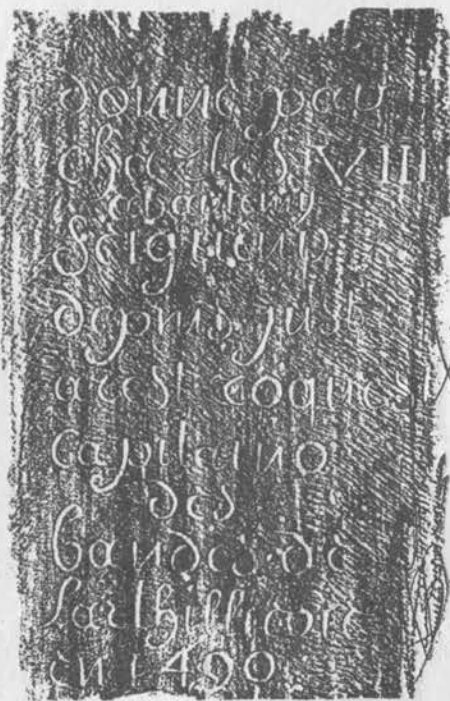 donne par
charles VIII
a bartemy
Seigneur
depins, just
arest
capitaine
des
bandes de
Larthillierie
en 1490